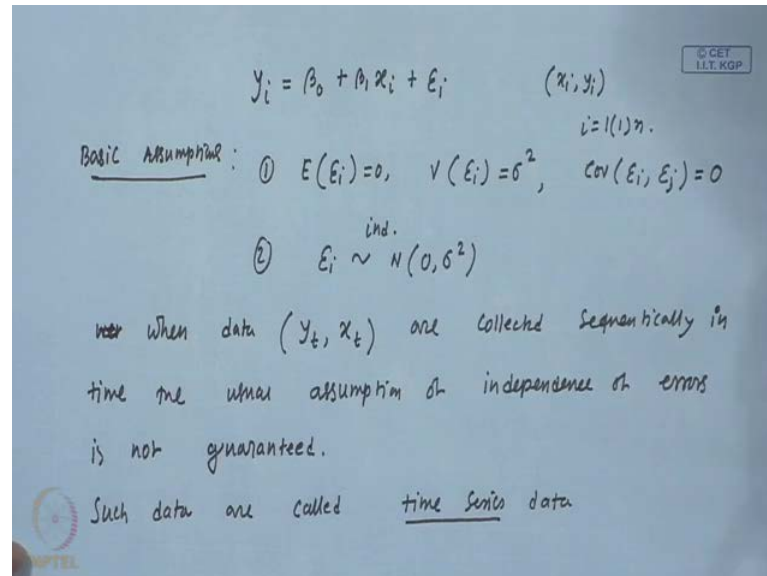 © CET
I.I.T. KGP
yᵢ = β₀ + β₁ xᵢ + εᵢ (xᵢ, yᵢ)
i = 1(1)n.
Basic Assumptions : ① E(εᵢ) = 0, V(εᵢ) = σ², Cov(εᵢ, εⱼ) = 0
ind.
② εᵢ ~ N(0, σ²)
When data (yₜ, xₜ) are collected sequentially in
time the usual assumption of independence of errors
is not guaranteed.
Such data are called time series data
NPTEL